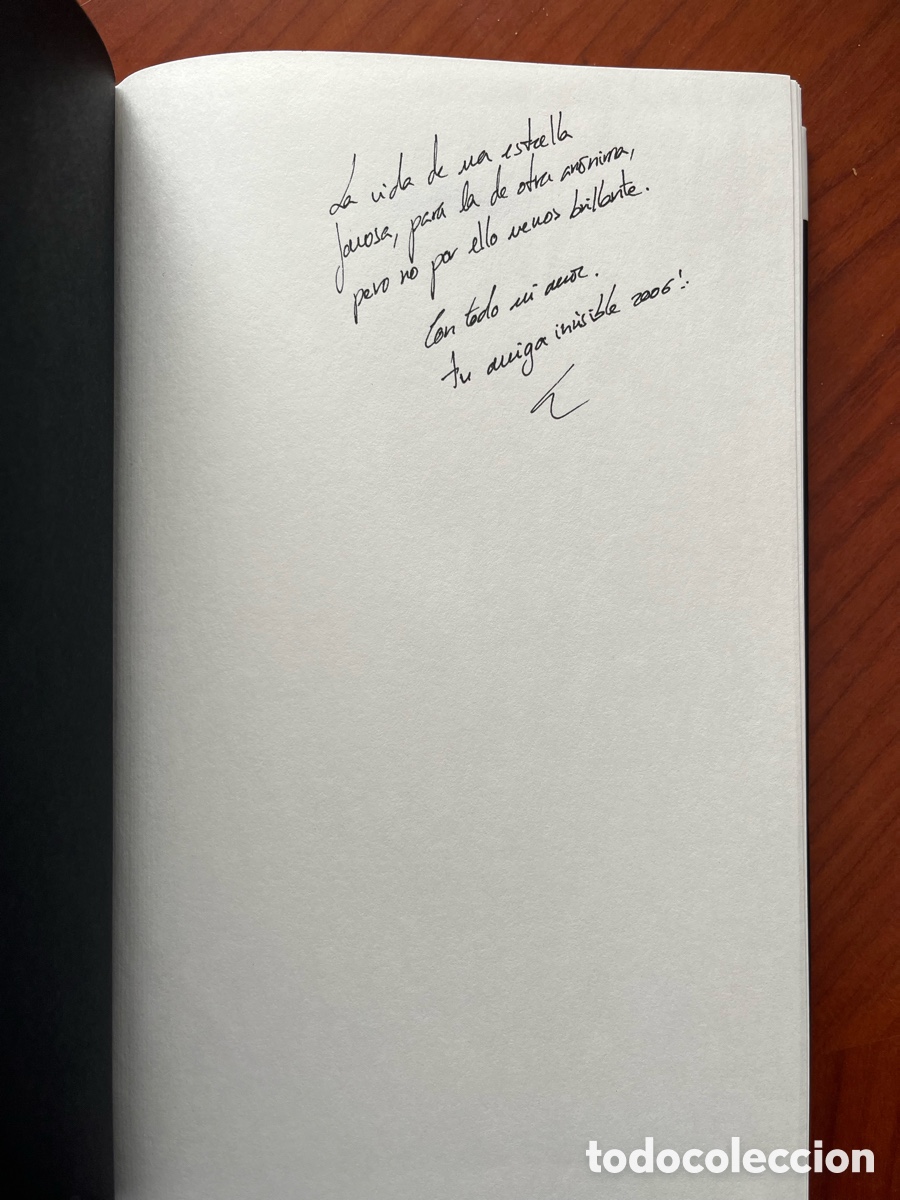 La vida de una estrella
famosa, para la de otra anónima,
pero no por ello menos brillante.
Con todo mi amor.
tu amiga invisible 2006!
todocoleccion